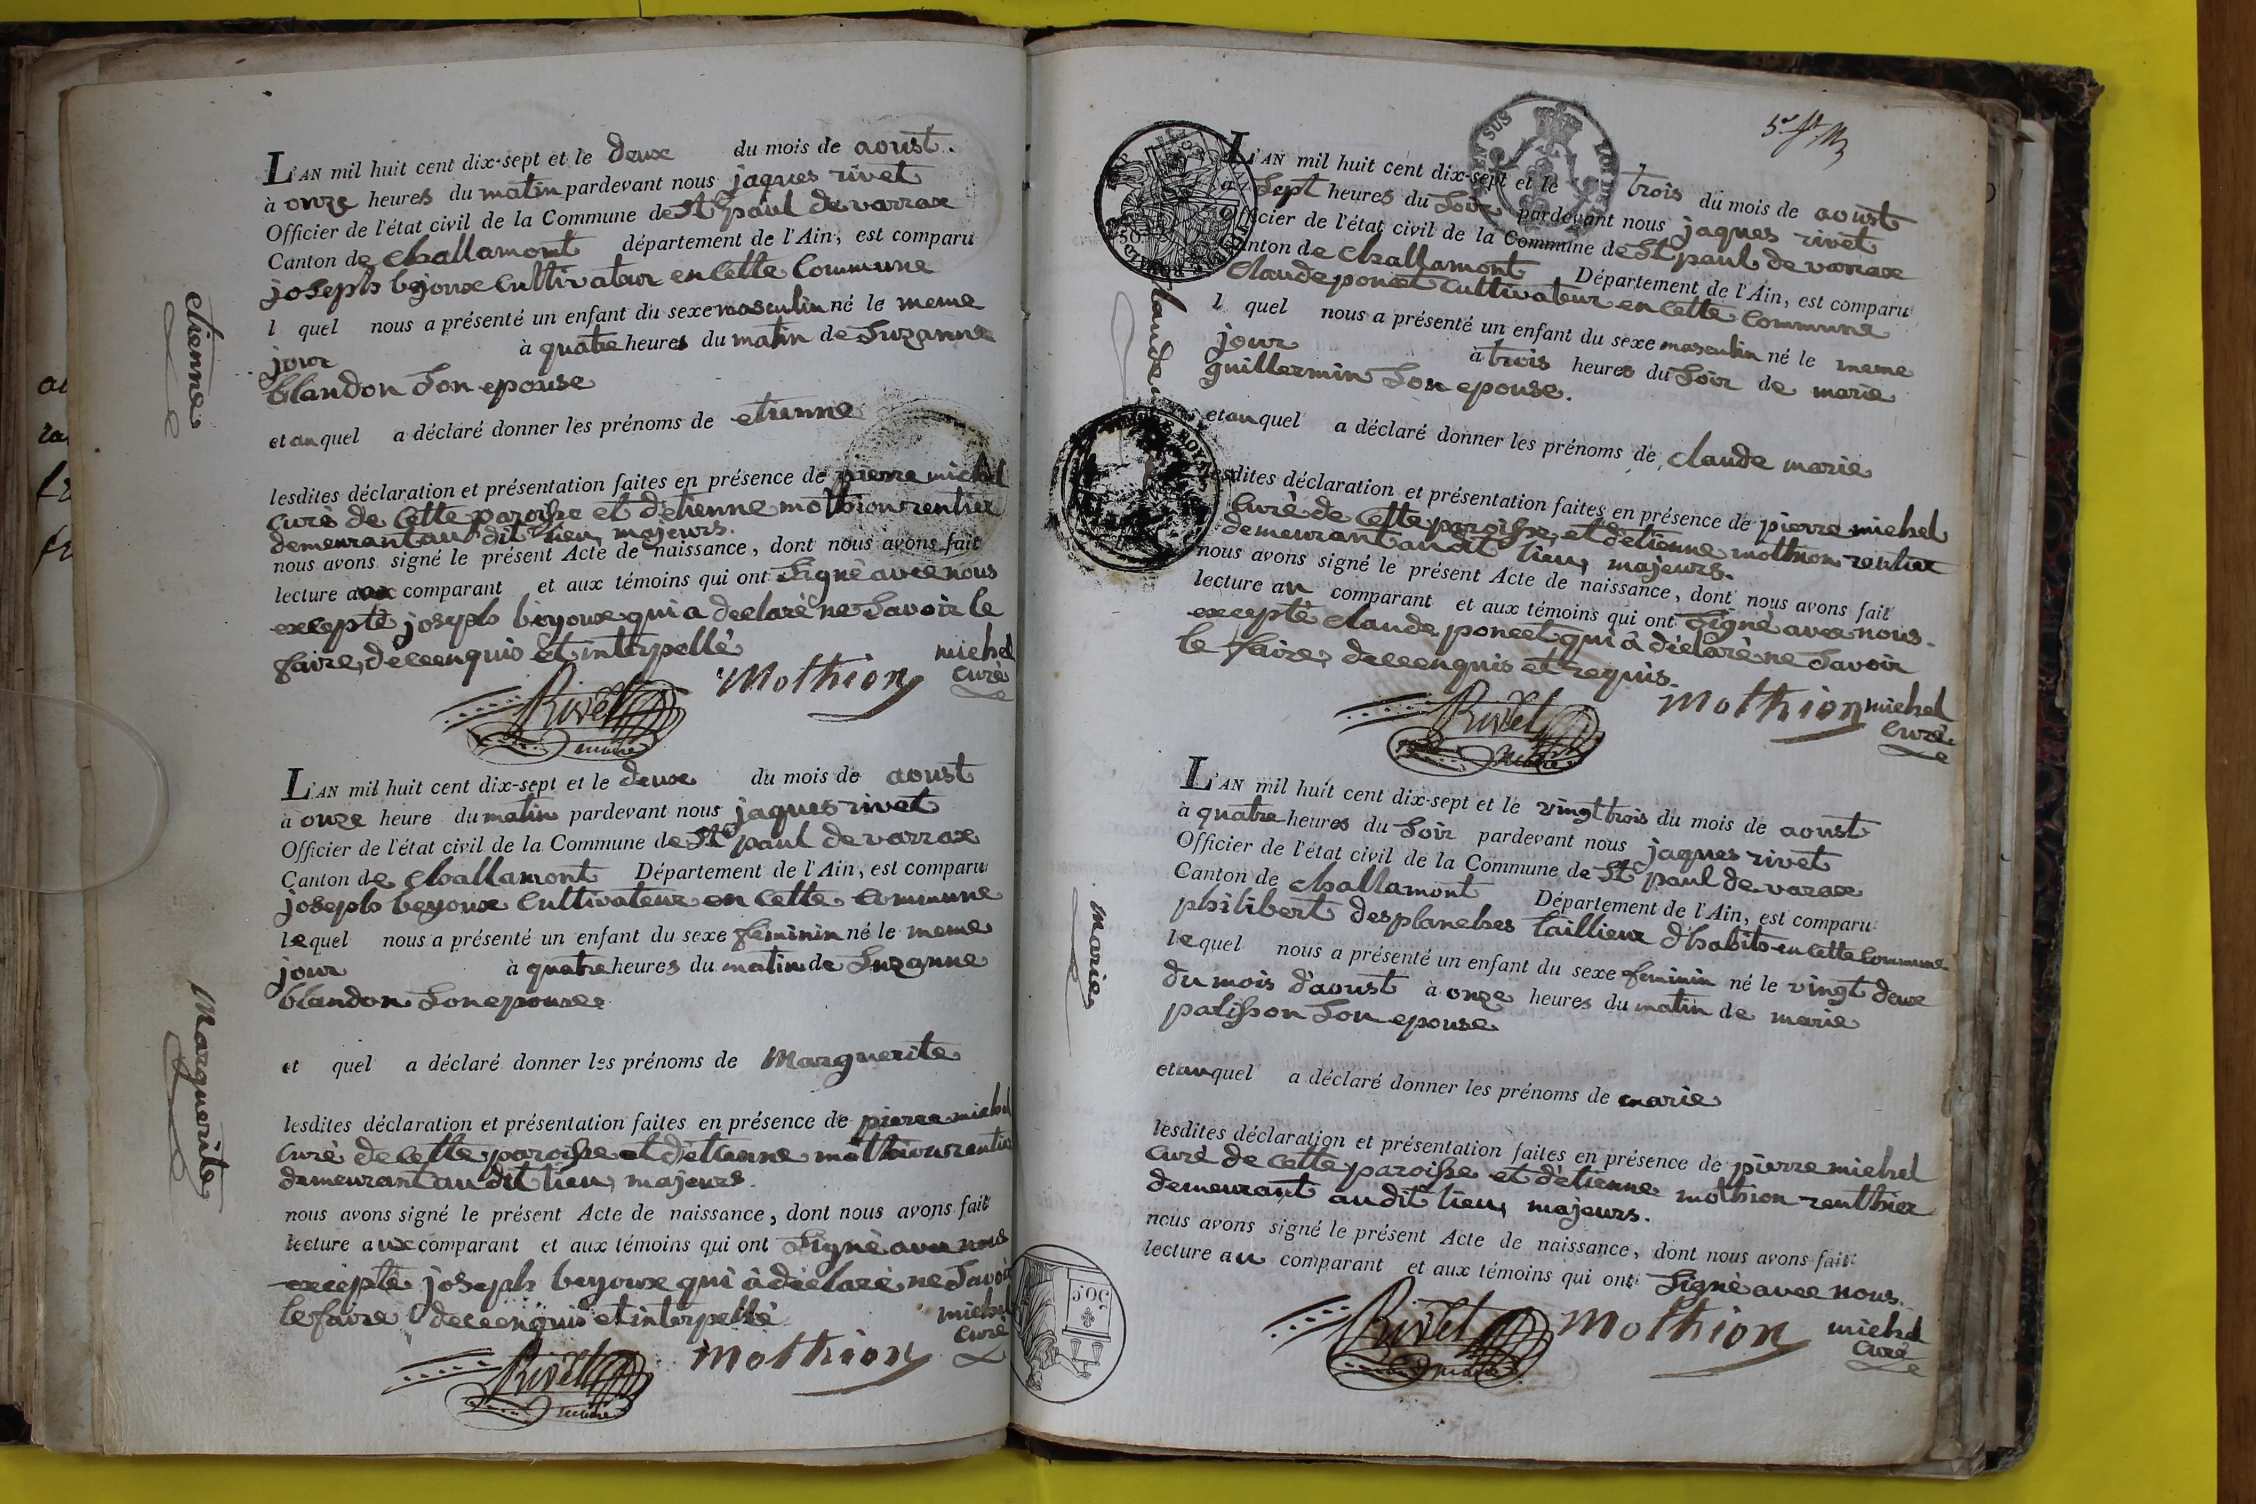 etienne
L'AN mil huit cent dix-sept et le deux du mois de aoust
à onze heures du matin pardevant nous jaques rivet
Officier de l'état civil de la Commune de St paul de varrax
Canton de Challamont département de l'Ain, est comparu
joseph beyoux Cultivateur en Cette Commune
l quel nous a présenté un enfant du sexe masculin né le meme
jour à quatre heures du matin de Suzanne
blandon Son epouse
et au quel a déclaré donner les prénoms de etienne
lesdites déclaration et présentation faites en présence de pierre michel
Curé de Cette paroisse et d'etienne mothion rentier
demeurant au dit lieu, majeurs.
nous avons signé le présent Acte de naissance, dont nous avons fait
lecture aux comparant et aux témoins qui ont Signé avec nous
excepté joseph beyoux qui a declaré ne Savoir le
faire, de ce enquis et interpellé
michel
Curé
Mothion
Rivet
maire
Marguerite
L'AN mil huit cent dix-sept et le deux du mois de aoust
à onze heure du matin pardevant nous jaques rivet
Officier de l'état civil de la Commune de St paul de varrax
Canton de Challamont Département de l'Ain, est comparu
joseph beyoux Cultivateur en Cette Commune
lequel nous a présenté un enfant du sexe feminin né le meme
jour à quatre heures du matin de Suzanne
blandon Son epouse
et quel a déclaré donner les prénoms de Marguerite
lesdites déclaration et présentation faites en présence de pierre michel
Curé de Cette paroisse et d'etienne mothion rentier
demeurant au dit lieu, majeurs.
nous avons signé le présent Acte de naissance, dont nous avons fait
lecture aux comparant et aux témoins qui ont Signé avec nous
excepté joseph beyoux qui à déclaré ne Savoir
le faire de ce enquis et interpellé
michel
Curé
Mothion
Rivet
maire
EN SUS
Claude
L'AN mil huit cent dix-sept et le trois du mois de aoust
à Sept heures du Soir pardevant nous jaques rivet
Officier de l'état civil de la Commune de St paul de varrax
Canton de Challamont Département de l'Ain, est comparu
Claude poncet Cultivateur en Cette Commune
l quel nous a présenté un enfant du sexe masculin né le meme
jour à trois heures du Soir de marie
guillermin Son epouse.
et au quel a déclaré donner les prénoms de Claude marie
lesdites déclaration et présentation faites en présence de pierre michel
Curé de Cette paroisse, et d'etienne mothion rentier
demeurant au dit lieu, majeurs.
nous avons signé le présent Acte de naissance, dont nous avons fait
lecture au comparant et aux témoins qui ont Signé avec nous.
excepté Claude poncet qui à déclaré ne Savoir
le faire, de ce enquis et requis.
Mothion
michel
Curé
Rivet
maire
marie
L'AN mil huit cent dix-sept et le vingt trois du mois de aoust
à quatre heures du Soir pardevant nous jaques rivet
Officier de l'état civil de la Commune de St paul de varax
Canton de Challamont Département de l'Ain, est comparu
philibert desplanches taillieur d'habits en Cette Commune
lequel nous a présenté un enfant du sexe feminin né le vingt deux
du mois d'aoust à onze heures du matin de marie
palisson Son epouse
et au quel a déclaré donner les prénoms de marie
lesdites déclaration et présentation faites en présence de pierre michel
Curé de Cette paroisse et d'etienne mothion renthier
demeurant au dit lieu, majeurs.
nous avons signé le présent Acte de naissance, dont nous avons fait
lecture au comparant et aux témoins qui ont Signé avec nous.
Rivet
maire
Mothion
michel
Curé
50 C